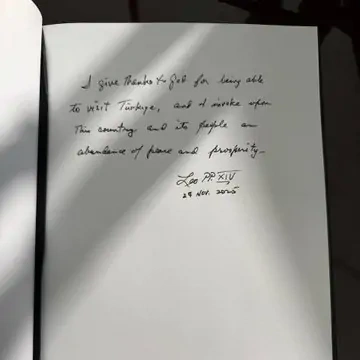 I give thanks to God for being able
to visit Türkiye, and I invoke upon
this country and its people an
abundance of peace and prosperity.
Leo PP. XIV
27 NOV. 2025